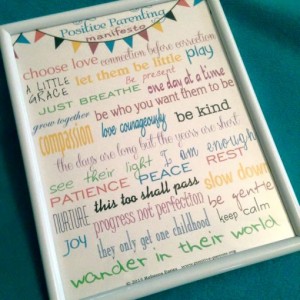 Positive Parenting
manifesto
choose love connection before correction
A LITTLE GRACE let them be little play
Be present
JUST BREATHE one day at a time
grow together be who you want them to be
compassion love courageously be kind
the days are long but the years are short
see their light I am enough
PATIENCE PEACE REST
NURTURE this too shall pass slow down
progress not perfection be gentle
joy they only get one childhood keep calm
wander in their world
© 2013 Rebecca Eanes www.positive-parents.org